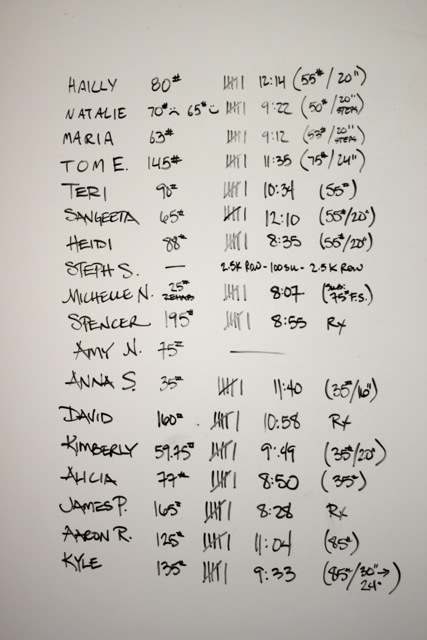 HAILLY 80# 𝍸I 12:14 (55#/20")
NATALIE 70#☹ 65#☺ 𝍸I 9:22 (50#/20" STEPS)
MARIA 63# 𝍸I 9:12 (53#/20" STEPS)
TOM E. 145# 𝍸I 11:35 (75#/24")
TERI 90# 𝍸I 10:34 (55#)
SANGEETA 65# 𝍸I 12:10 (55#/20")
HEIDI 88# 𝍸I 8:35 (55#/20")
STEPH S. — 2.5K ROW - 100 S.U. - 2.5K ROW
MICHELLE N. 25# REHAB 𝍸I 8:07 (SUB: 75# F.S.)
SPENCER 195# 𝍸I 8:55 Rx
AMY N. 75# —
ANNA S. 35# 𝍸I 11:40 (35#/16")
DAVID 160# 𝍸I 10:58 Rx
KIMBERLY 59.75# 𝍸I 9:49 (35#/20")
ALICIA 77# 𝍸I 8:50 (35#)
JAMES P. 165# 𝍸I 8:28 Rx
AARON R. 125# 𝍸I 11:04 (85#)
KYLE 135# 𝍸I 9:33 (85#/30"→ 24")